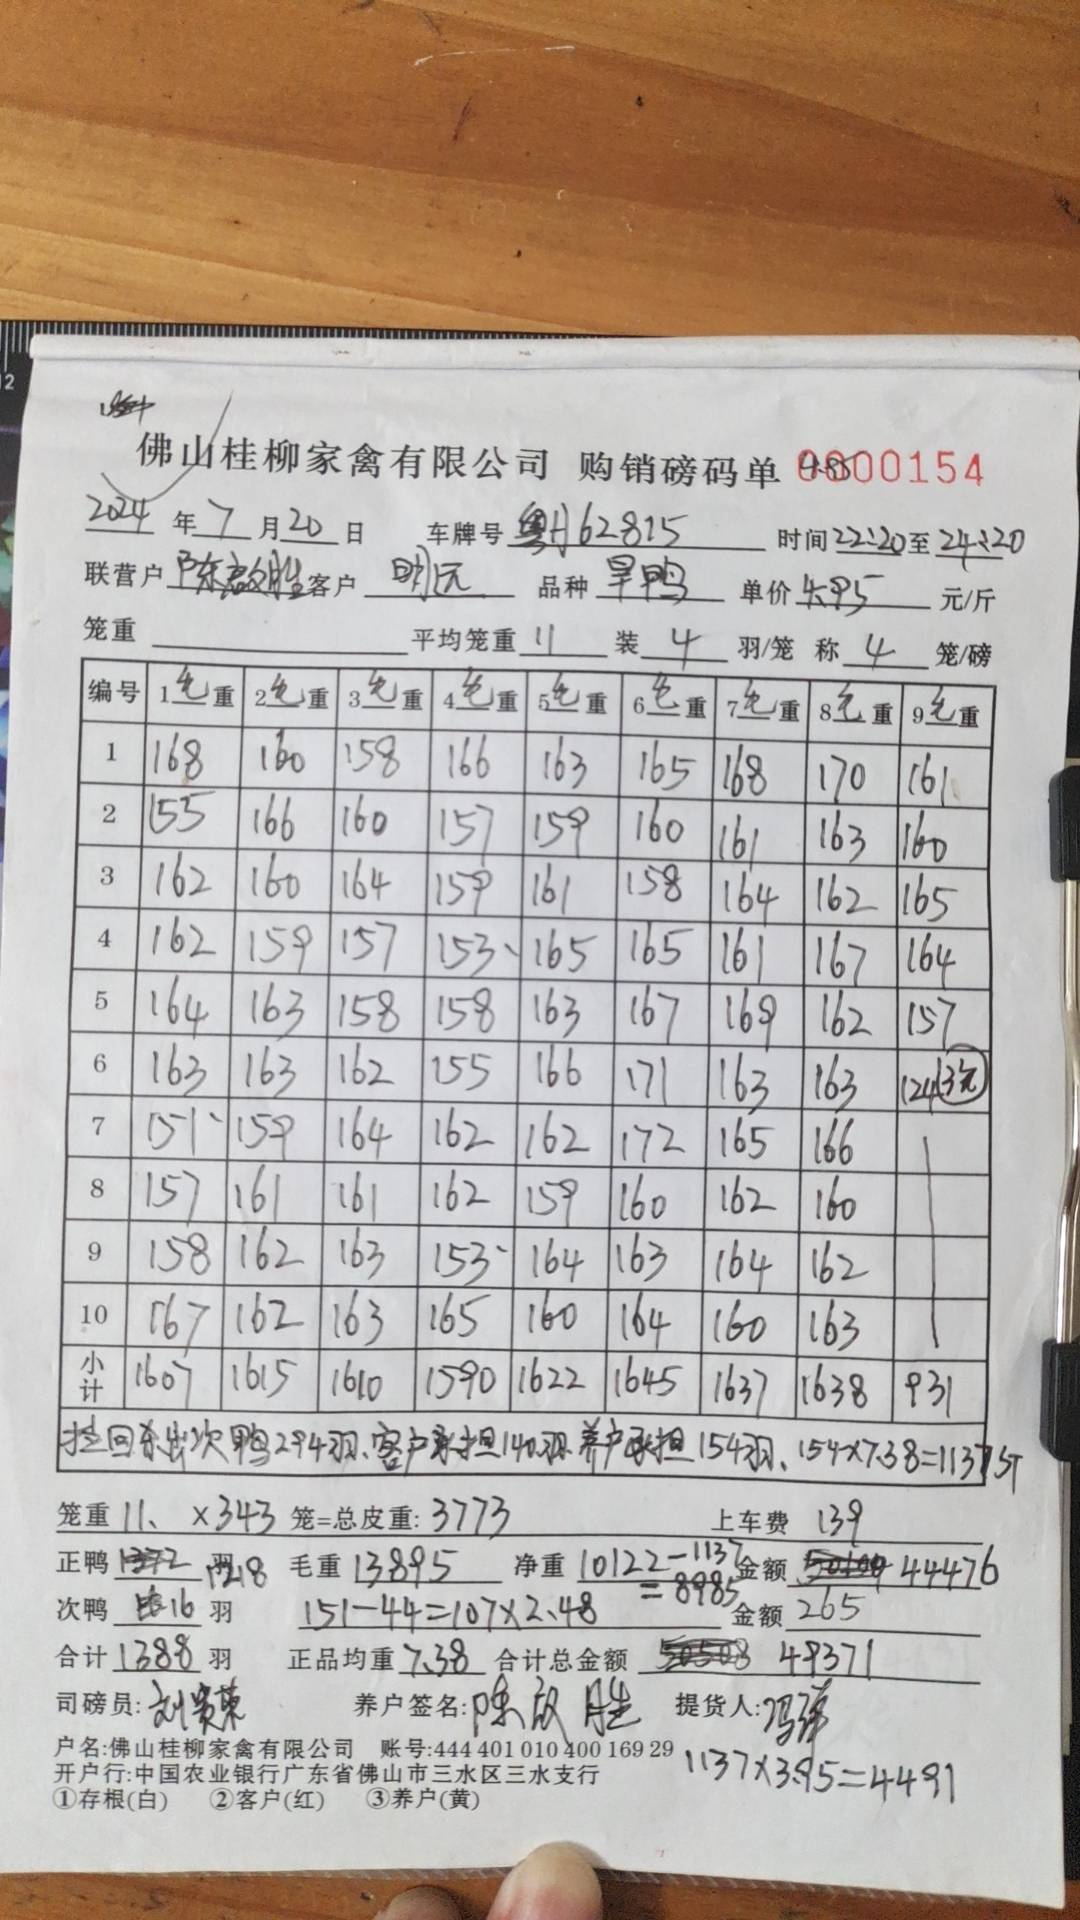 佛山桂柳家禽有限公司 购销磅码单 0000154
2024 年 7 月 20 日 车牌号 粤H62815 时间 22:20 至 24:20
联营户 陈啟胜 客户 明元 品种 旱鸭 单价 4.95 元/斤
笼重 平均笼重 11 装 4 羽/笼 称 4 笼/磅
编号 1毛重 2毛重 3毛重 4毛重 5毛重 6毛重 7毛重 8毛重 9毛重
1 168 160 158 166 163 165 168 170 161
2 155 166 160 157 159 160 161 163 160
3 162 160 164 159 161 158 164 162 165
4 162 159 157 153 165 165 161 167 164
5 164 163 158 158 163 167 169 162 157
6 163 163 162 155 166 171 163 163 124 (3笼)
7 151 159 164 162 162 172 165 166
8 157 161 161 162 159 160 162 160
9 158 162 163 153 164 163 164 162
10 167 162 163 165 160 164 160 163
小计 1607 1615 1610 1590 1622 1645 1637 1638 931
回 出次鸭294羽、客户承担140羽、养户承担154羽、154×7.38=1137斤
笼重 11、 ×343 笼=总皮重: 3773 上车费 139
正鸭 1372 羽 1218 毛重 13895 净重 10122-1137 金额 44476
=8985
次鸭 16 羽 151-44=107×2.48 金额 265
合计 1388 羽 正品均重 7.38 合计总金额 50503 49371
司磅员: 刘 荣 养户签名: 陈啟胜 提货人: 冯
户名:佛山桂柳家禽有限公司 账号:444 401 010 400 169 29
1137×3.95=4491
开户行:中国农业银行广东省佛山市三水区三水支行
①存根(白) ②客户(红) ③养户(黄)